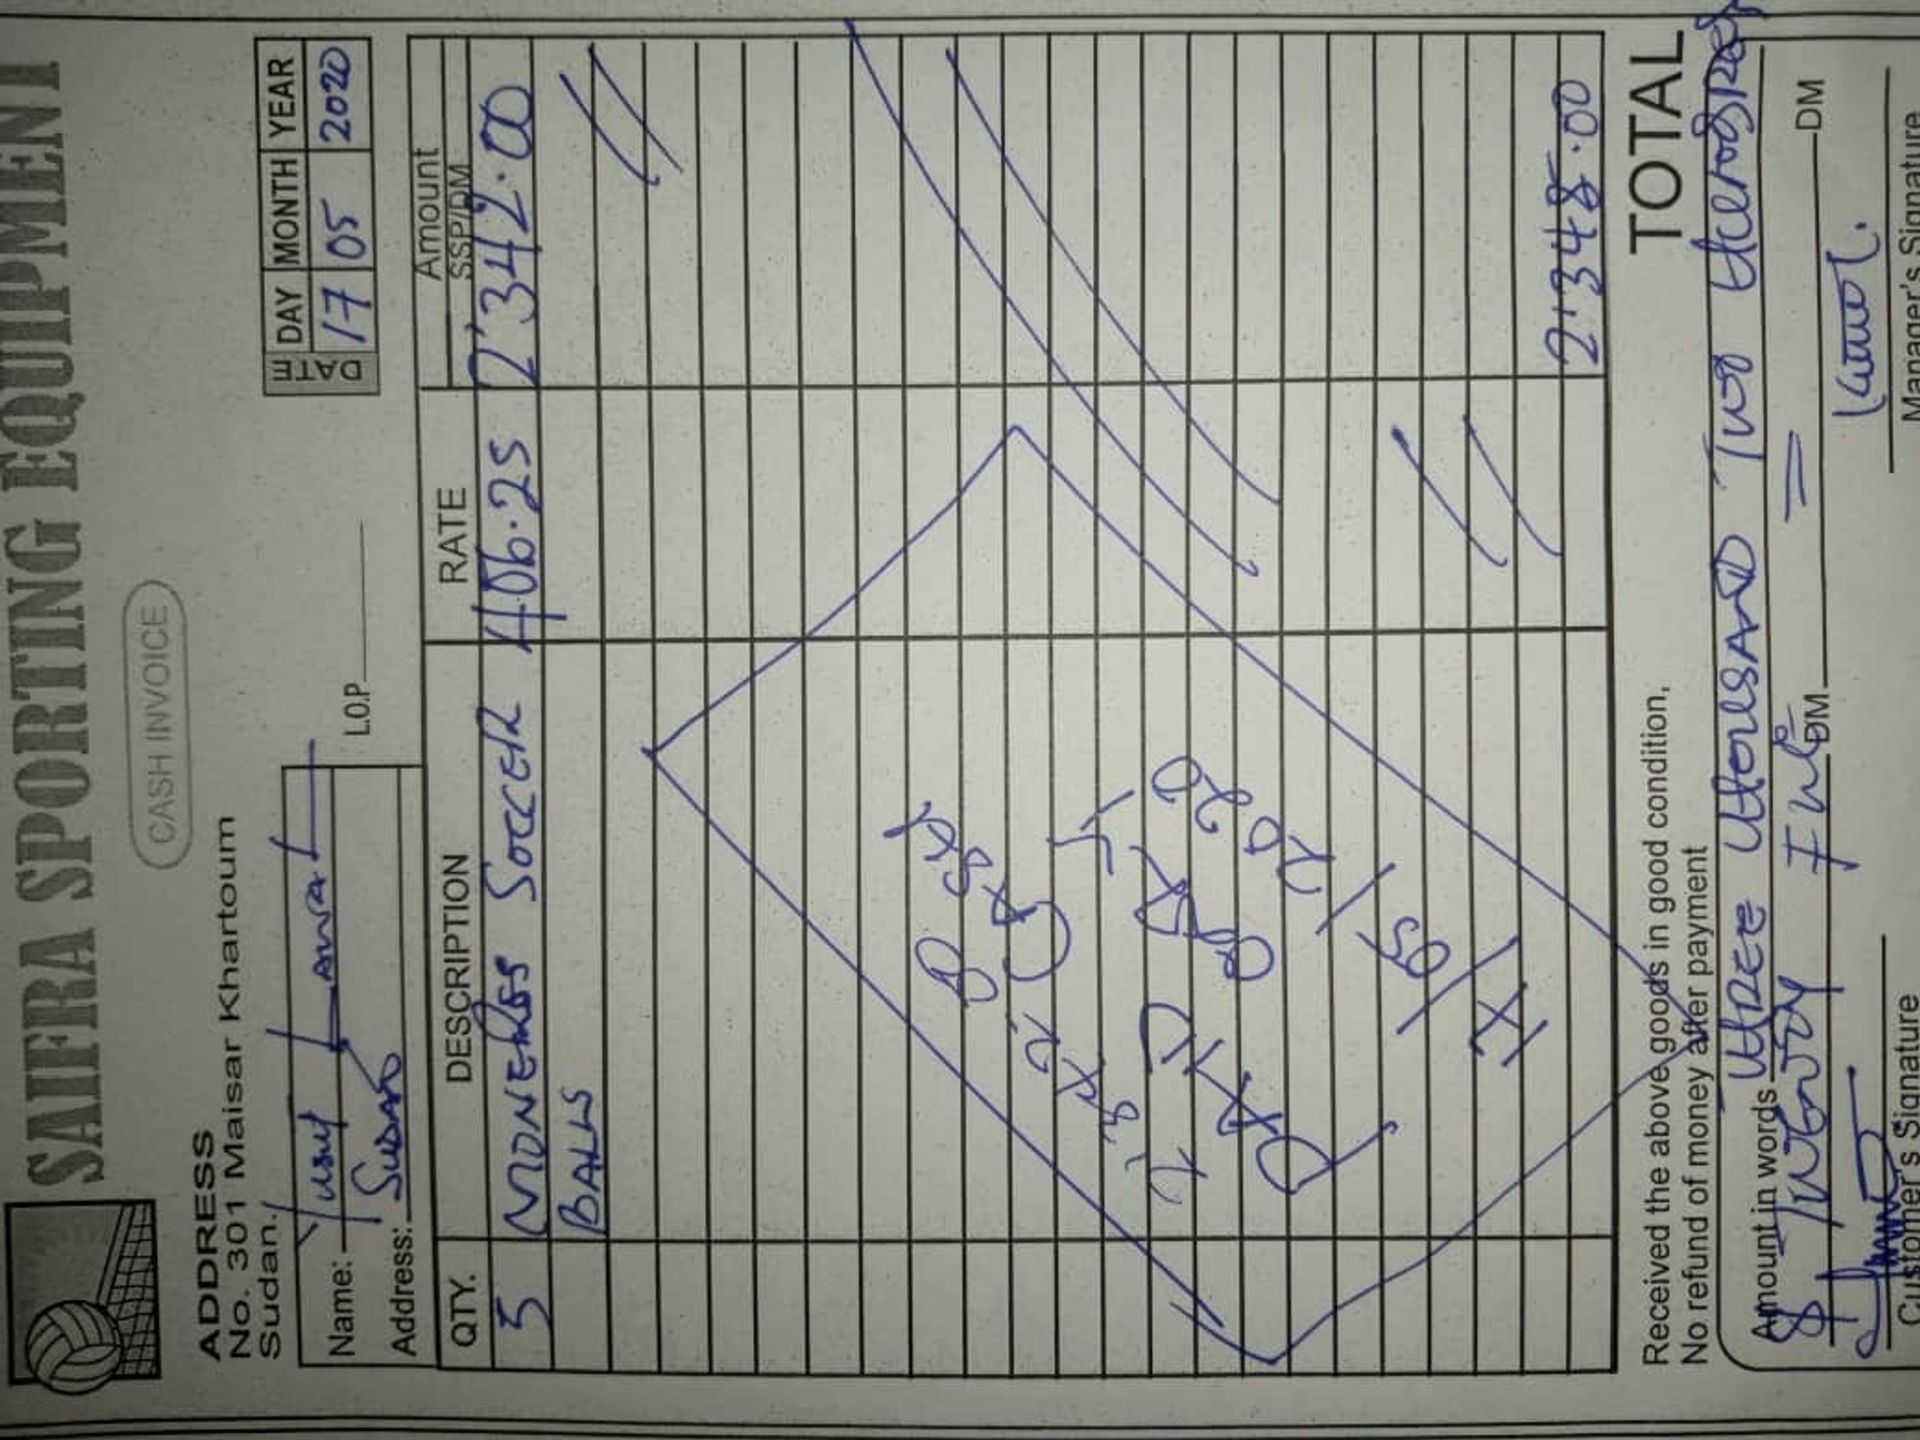 SAIFRA SPORTING EQUIPMENT
CASH INVOICE
ADDRESS
No. 301 Maisar Khartoum
Sudan.
DATE DAY MONTH YEAR
17 05 2020
Name: Yusuf Lawal
L.O.P
Address: Sudan
QTY. DESCRIPTION RATE Amount
SSP/DM
5 Soccer 406.25 2'342.00
BALLS
PAID
17/05/2020
2'348.00
TOTAL
Received the above goods in good condition,
No refund of money after payment
Amount in words Three thousand Two Hundred
& Twenty Five DM DM
Customer's Signature Manager's Signature